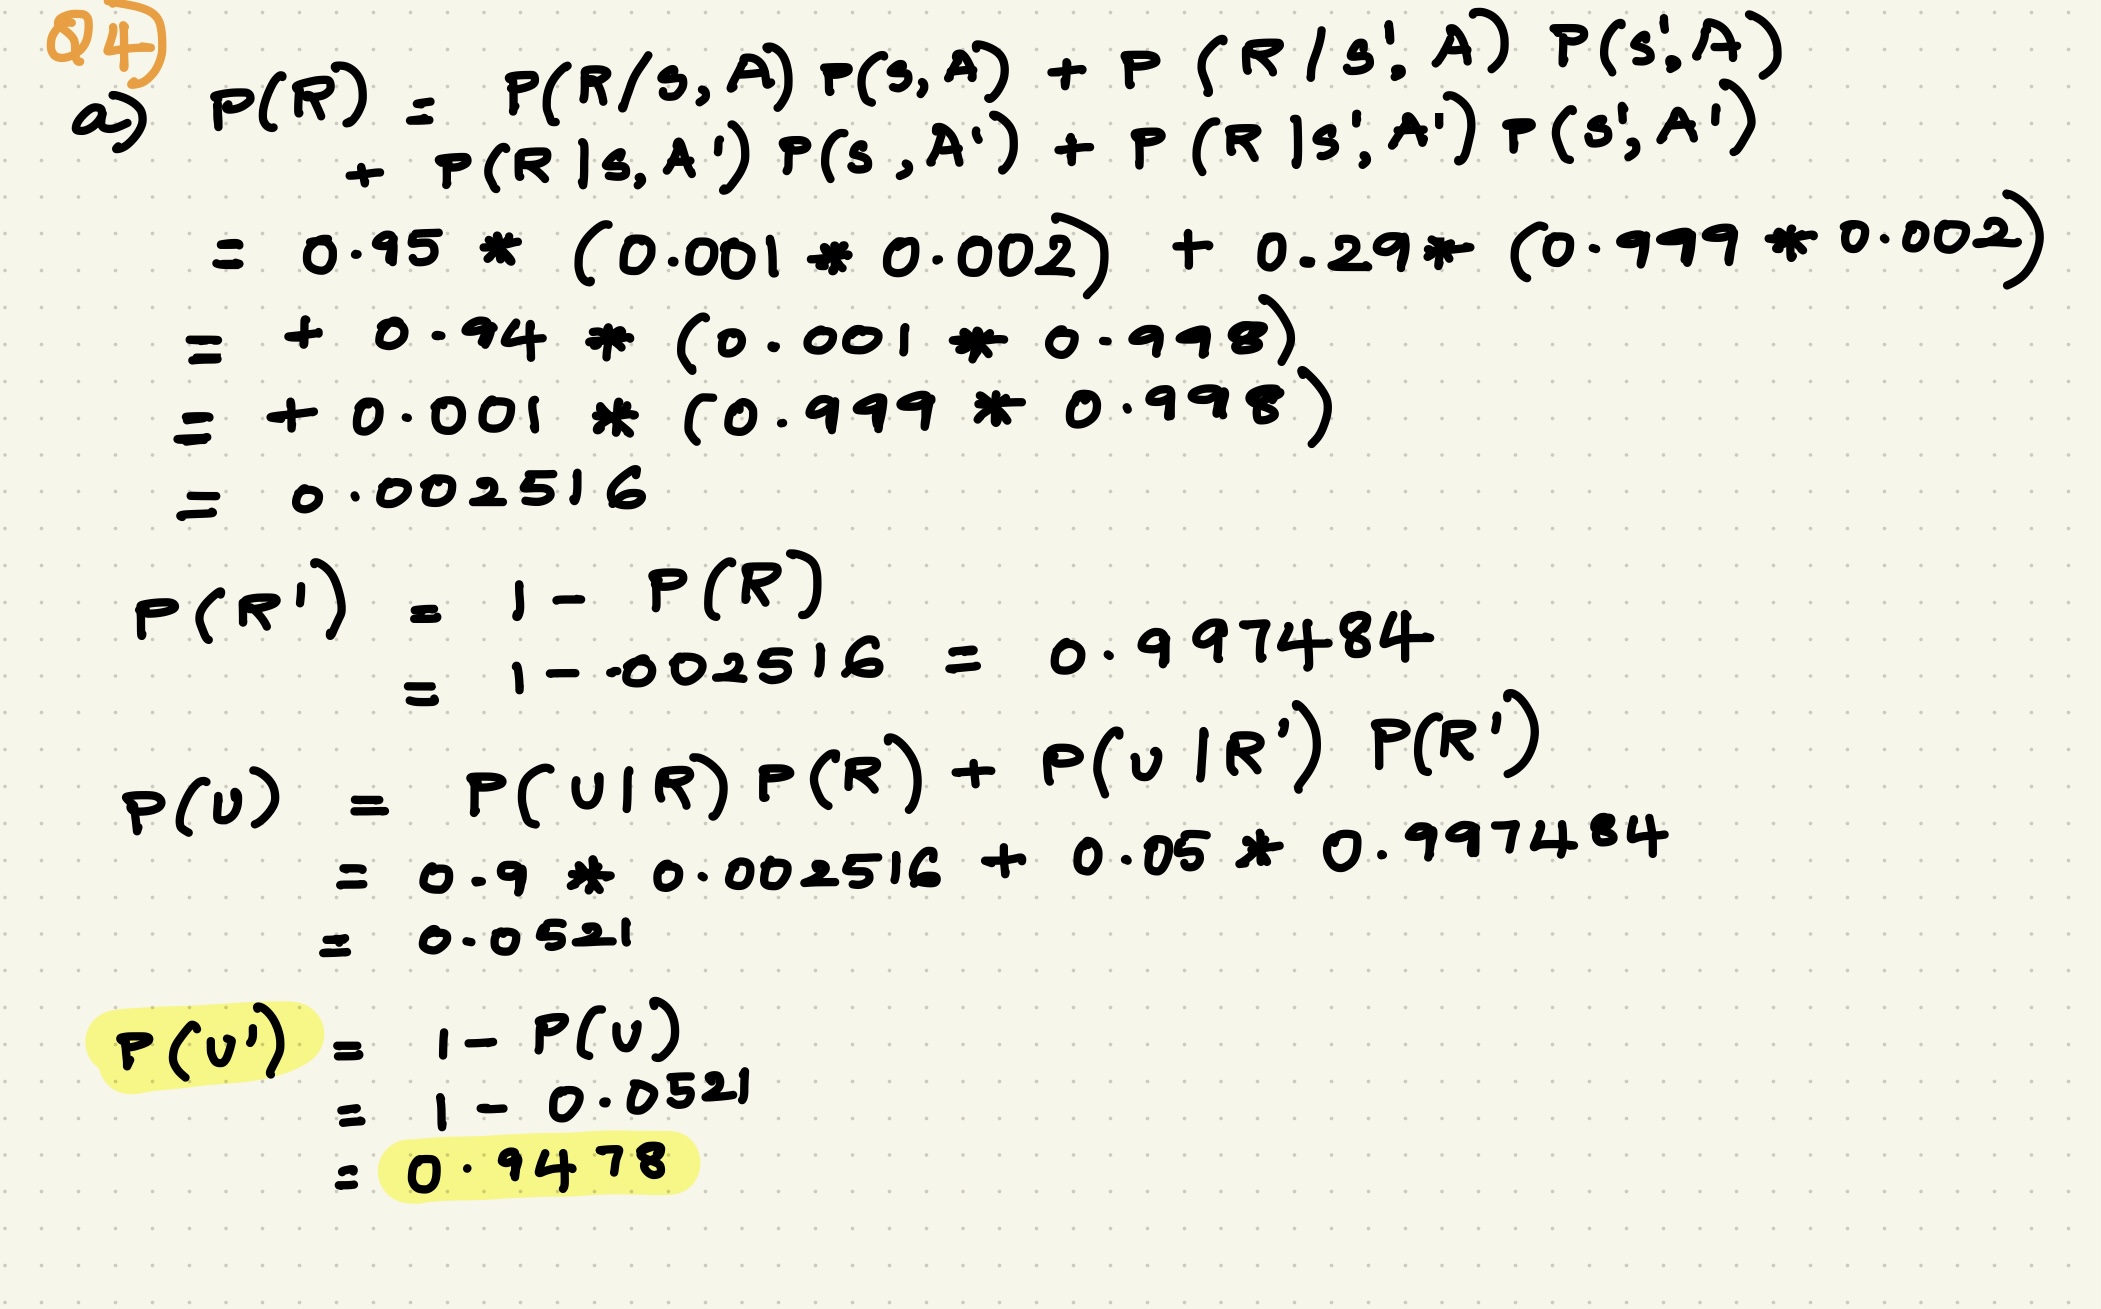 Q4)
a) P(R) = P(R/S, A) P(S, A) + P(R/S', A) P(S', A)
+ P(R|S, A') P(S, A') + P(R|S', A') P(S', A')
= 0.95 * (0.001 * 0.002) + 0.29 * (0.999 * 0.002)
= + 0.94 * (0.001 * 0.998)
= + 0.001 * (0.999 * 0.998)
= 0.002516
P(R') = 1 - P(R)
= 1 - .002516 = 0.997484
P(U) = P(U|R) P(R) + P(U|R') P(R')
= 0.9 * 0.002516 + 0.05 * 0.997484
= 0.0521
P(U') = 1 - P(U)
= 1 - 0.0521
= 0.9478